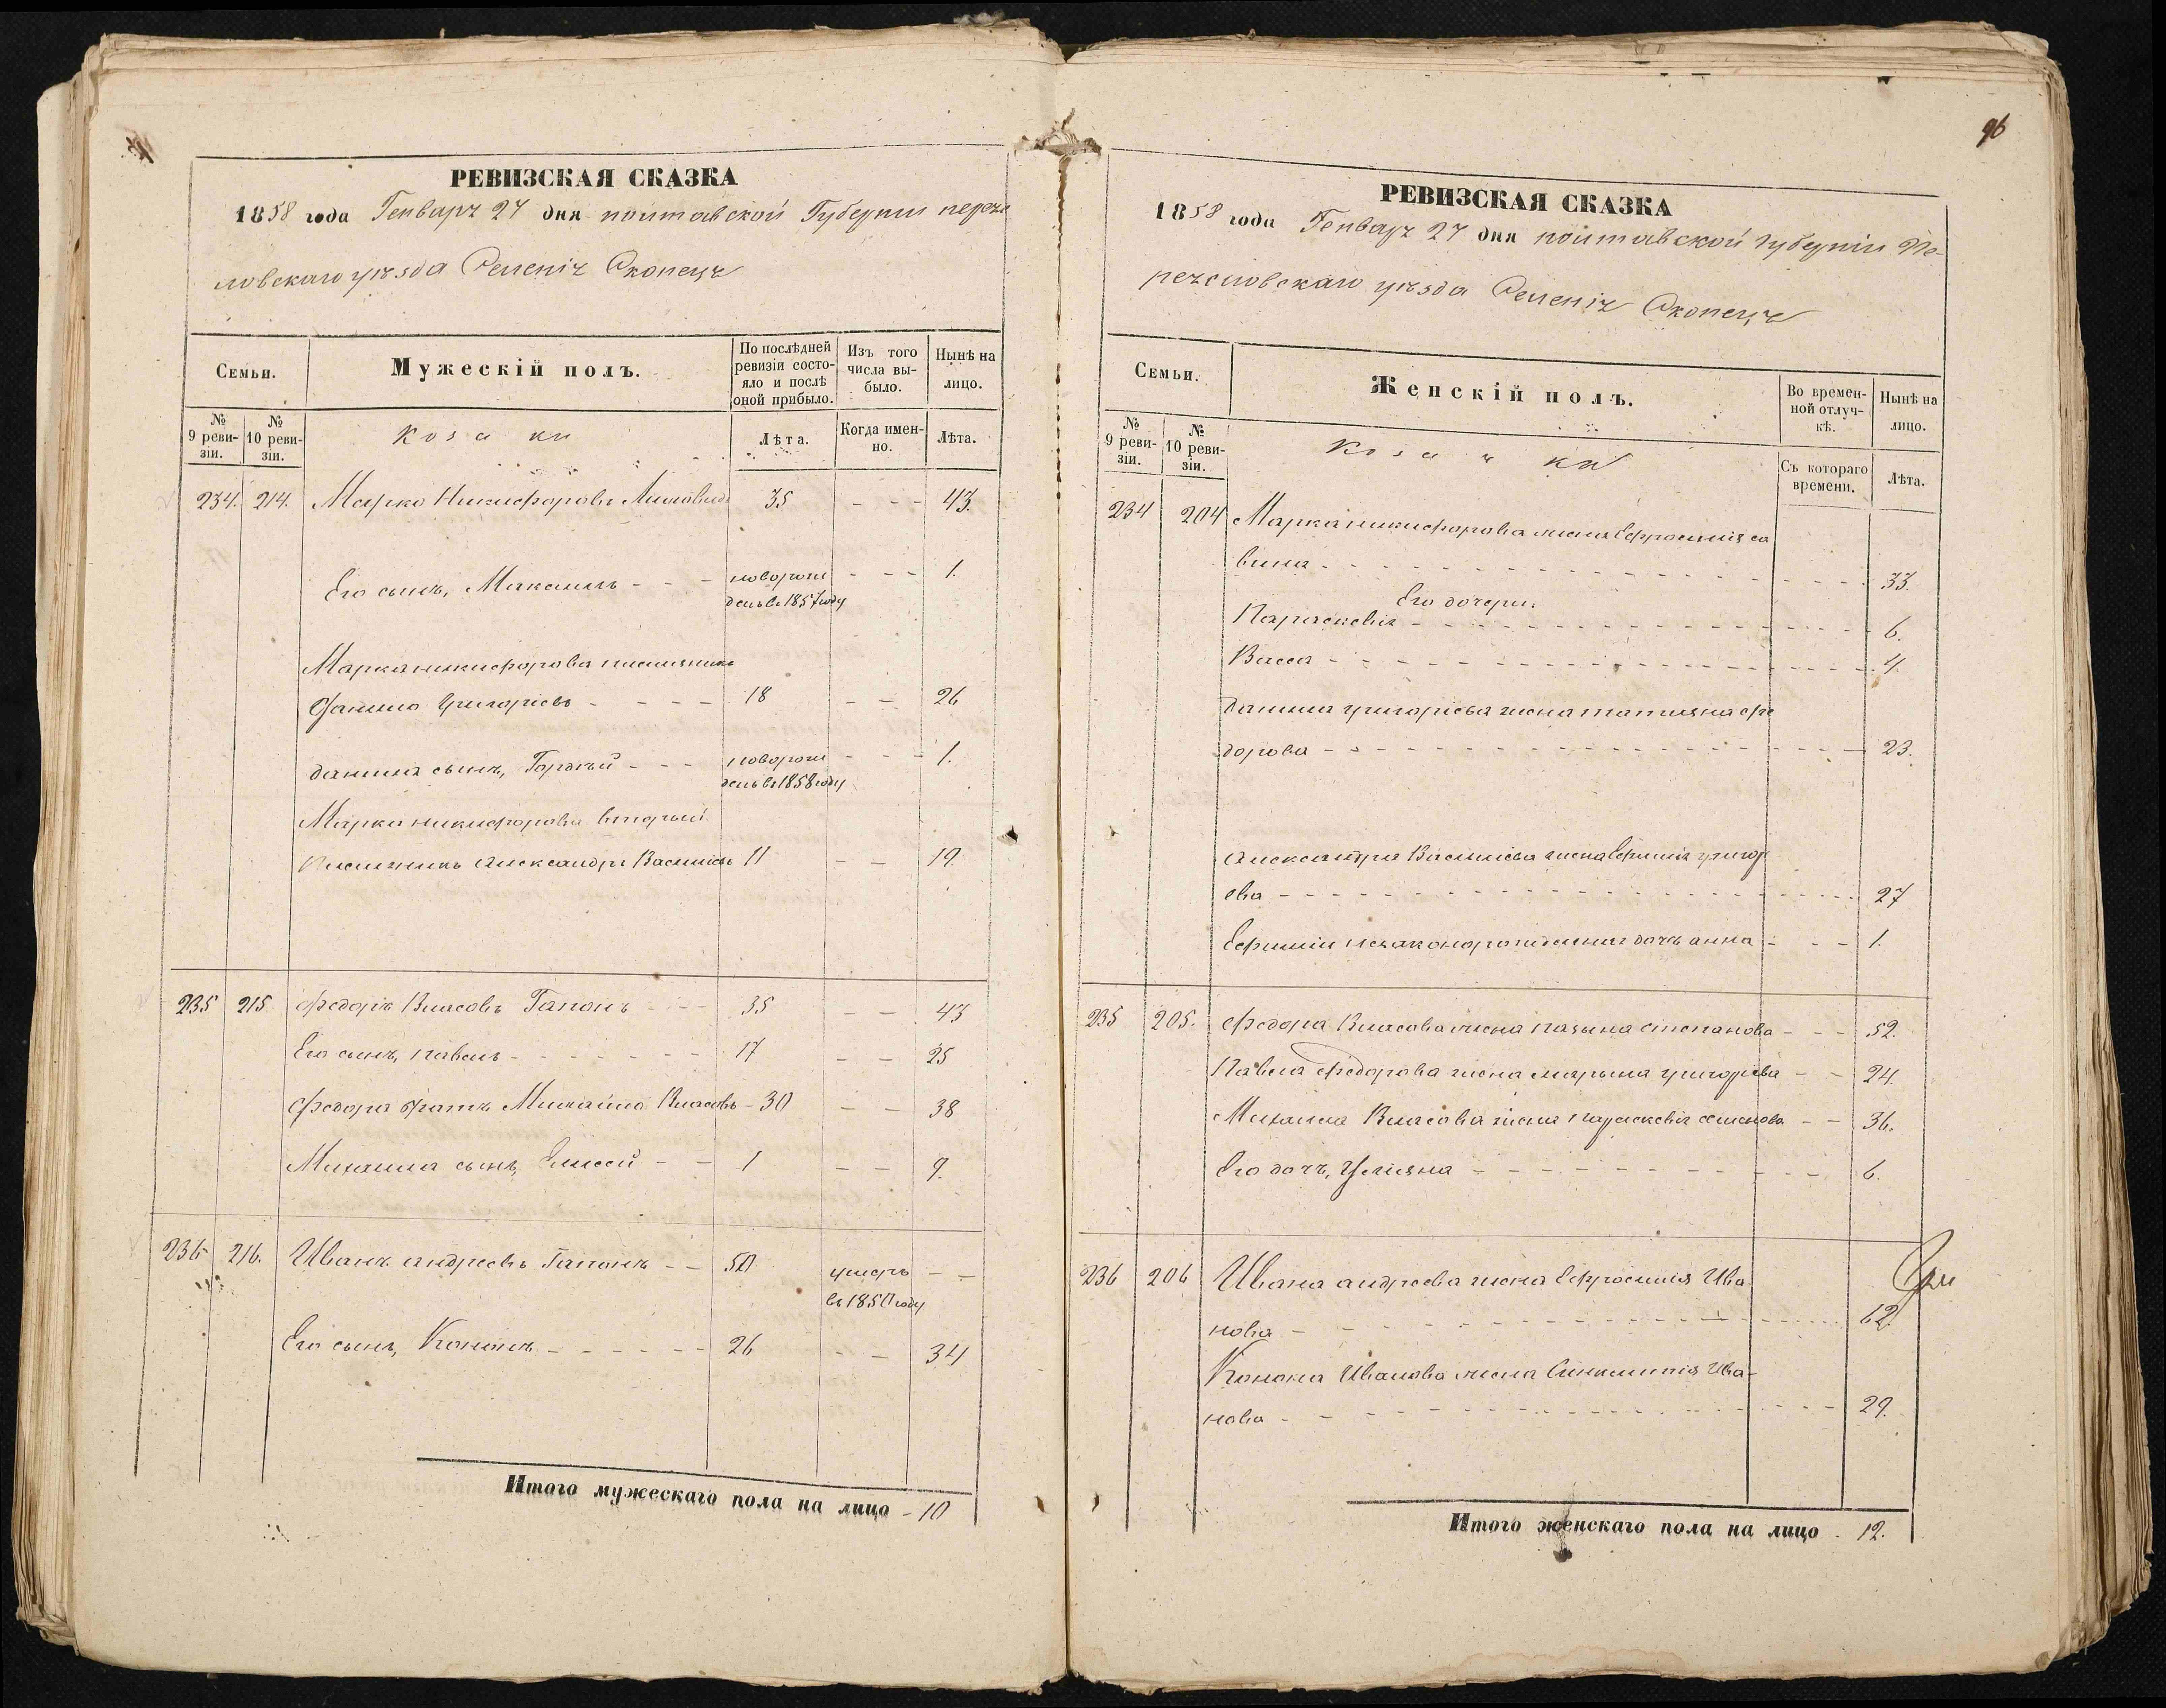 РЕВИЗСКАЯ СКАЗКА
1858 года Генваря 27 дня полтавской Губернии перея
ловскаго уѣзда Селенія Скопецъ
Семьи.
Мужескій полъ.
По послѣдней ревизіи состояло и послѣ оной прибыло.
Изъ того числа выбыло.
Нынѣ на лицо.
№ 9 ревизіи.
№ 10 ревизіи.
Козаки
Лѣта.
Когда именно.
Лѣта.
234. 214. Марко Никифоровъ 35 - - - 43.
Его сынъ, Максимъ - - - новорож - - - 1.
денъ въ 1857 году
Марка никифорова племяникъ
Данило Григоріевъ - - - - 18 - - 26
данила сынъ, Гордѣй - - - новорож - - - 1.
денъ въ 1858 году
Марка никифорова вторый
Племяникъ Александръ Василіевъ 11 - - 19.
235 215 Федоръ Власовъ Гапонъ - - - 35 - - 43
Его сынъ, павелъ - - - - - - - 17 - - 25
Федора братъ Михайло Власовъ - 30 - - 38
Михаила сынъ, Елисей - - 1 - - 9.
236 216. Иванъ андреевъ Гапонъ - - 50 умеръ - -
въ 1850 году
Его сынъ, Кононъ - - - - - - 26 - - 34
Итого мужескаго пола на лицо - 10
96
РЕВИЗСКАЯ СКАЗКА
1858 года Генваря 27 дня полтавской губерніи Пе-
реясловскаго уѣзда Селенія Скопецъ
Семьи.
Женскій полъ.
Во временной отлучкѣ.
Нынѣ на лицо.
№ 9 ревизіи.
№ 10 ревизіи.
Козачки
Съ котораго времени.
Лѣта.
234 204 Марка никифорова жена Ефросинія са
вина - - - 33.
Его дочери:
Параскевія - - - 6.
Васса - - - 4.
данила григоріева жена татияна фе
дорова - - - 23.
Александра Василіева жена Ефимія григор
ева - - - 27
Ефиміи незаконорожденная дочь анна - - - 1.
235 205. Федора Власова жена степанова - - - 52.
Павла Федорова жена марьина григоріева - - 24.
Михаила Власова жена параскевія семенова - - 36.
Его дочь, Улияна - - - 6.
236 206 Ивана андреева жена Ефросинія Ива
нова - - - 62
Конона Иванова жена Ива-
нова - - - 29.
Итого женскаго пола на лицо - 12.